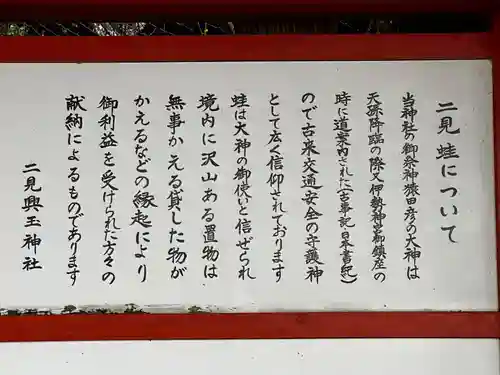 二見 蛙について
当神社の御祭神猿田彦の大神は
天孫降臨の際又伊勢神宮御鎮座の
時に道案内された(古事記 日本書紀)
ので古来交通安全の守護神
として広く信仰されております
蛙は大神の御使いと信ぜられ
境内に沢山ある置物は
無事かえる貸した物が
かえるなどの縁起により
御利益を受けられた方々の
献納によるものであります
二見興玉神社